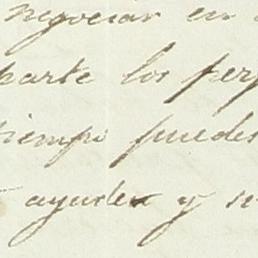 negociar en
parte los per
tiempo puedes
ayudar y